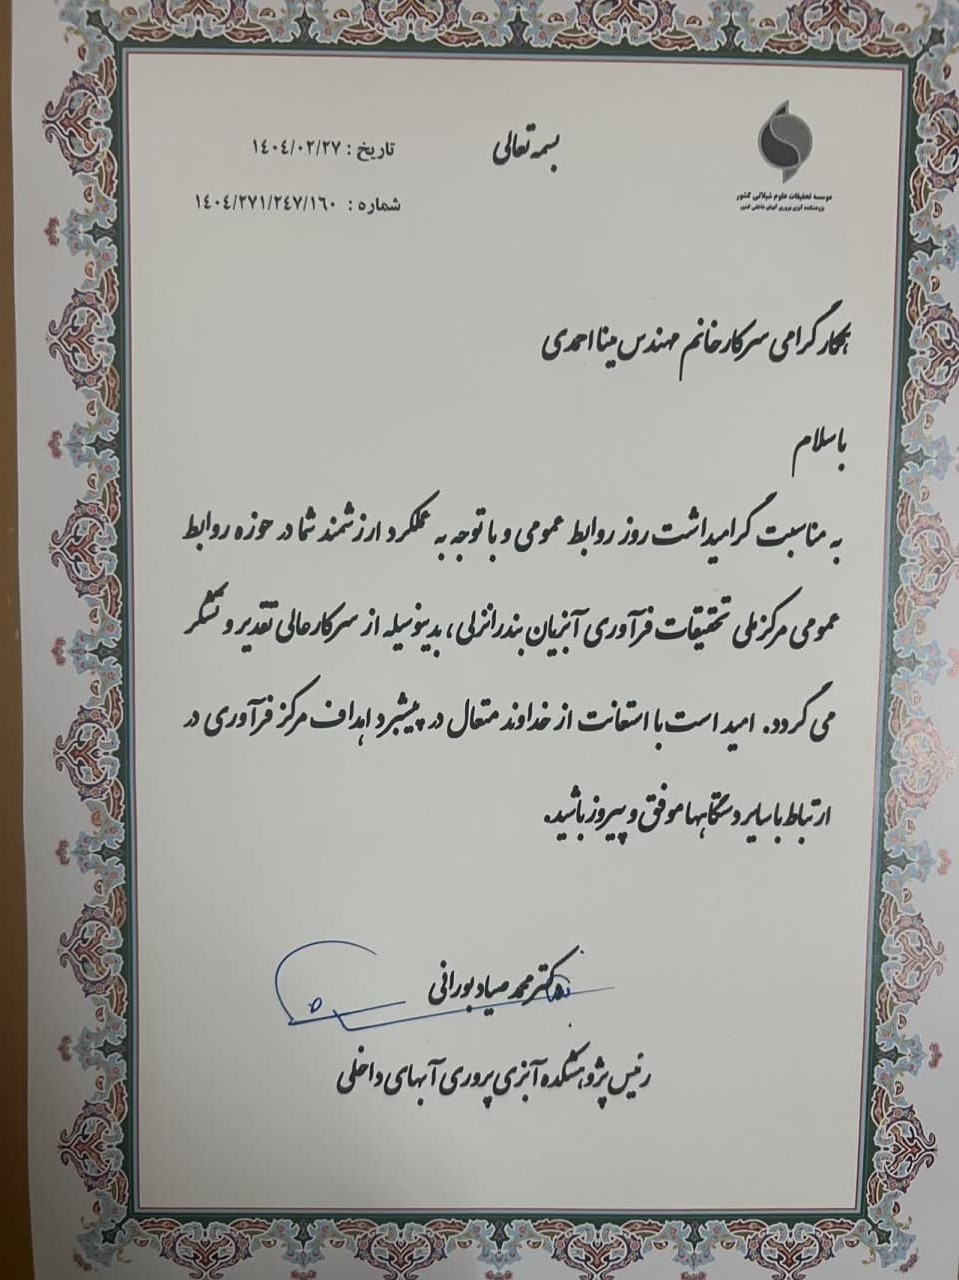 بسمه تعالی
تاریخ : ۱٤۰٤/۰۲/۲۷
شماره : ۱٤۰٤/۲۷۱/۲٤۷/۱٦۰
موسسه تحقیقات علوم شیلاتی کشور
پژوهشکده آبزی پروری آبهای داخلی کشور
همکار گرامی سرکار خانم مهندس مینا احمدی
با سلام
به مناسبت گرامیداشت روز روابط عمومی و با توجه به عملکرد ارزشمند شما در حوزه روابط
عمومی مرکز ملی تحقیقات فرآوری آبزیان بندرانزلی، بدینوسیله از سرکارعالی تقدیر و تشکر
می گردد. امید است با استعانت از خداوند متعال در پیشبرد اهداف مرکز فرآوری در
ارتباط با سایر دستگاهها موفق و پیروز باشید.
دکتر محمد صیاد بورانی
رئیس پژوهشکده آبزی پروری آبهای داخلی